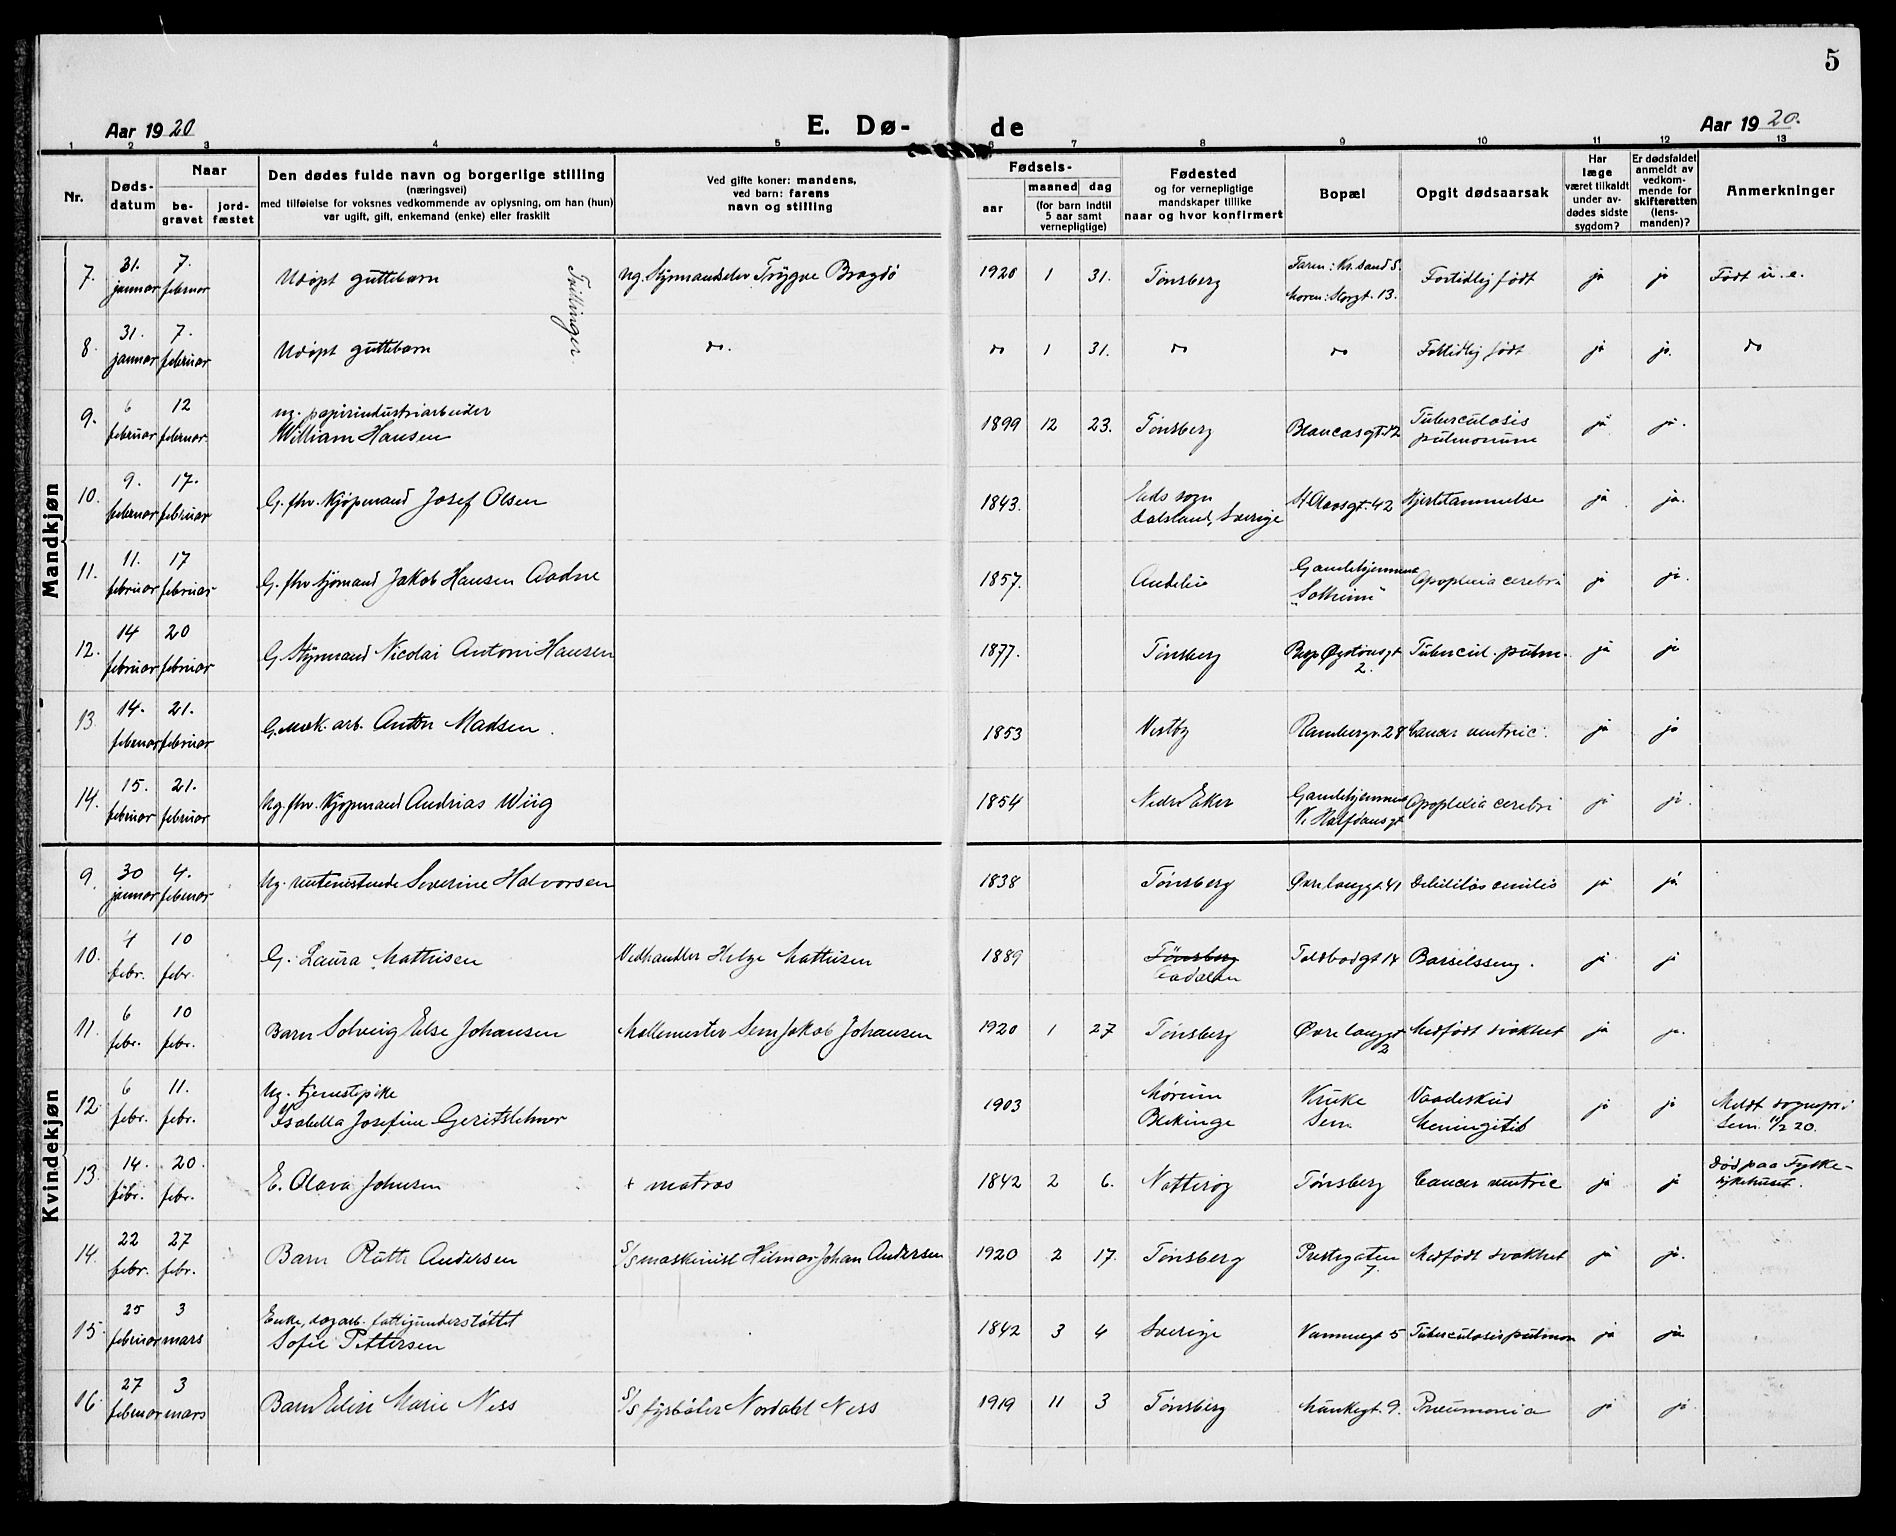 5
Aar 1920
E. Dø-
de
Aar 1920.
1 2 3 4 5 6 7 8 9 10 11 12 13
Nr.
Døds-
datum
Naar
be-
gravet
jord-
fæstet
Den dødes fulde navn og borgerlige stilling
(næringsvei)
med tilføielse for voksnes vedkommende av oplysning, om han (hun)
var ugift, gift, enkemand (enke) eller fraskilt
Ved gifte koner: mandens,
ved barn: farens
navn og stilling
Fødsels-
aar
maaned
dag
(for barn indtil
5 aar samt
vernepligtige)
Fødested
og for vernepligtige
mandskaper tillike
naar og hvor konfirmert
Bopæl
Opgit dødsaarsak
Har
læge
været tilkaldt
under av-
dødes sidste
sygdom?
Er dødsfaldet
anmeldt av
vedkom-
mende for
skifteretten
(lens-
manden)?
Anmerkninger
Mandkjøn
7. 31. januar 7. februar Udøpt guttebarn Ug. Styrmandselev Trygve Bragdø 1920 1 31. Tønsberg Faren: Kr.sand S. Moren: Storgt. 13. Fortidlig født ja ja Født u. e.
Tvillinger
8. 31. januar 7. februar Udøpt guttebarn do. do 1 31. do do Fortidlig født ja ja. do
9. 6 februar 12 februar Ug. papirindustriarbeider William Hansen 1899 12 23. Tønsberg Blancasgt. 12 Tuberculosis pulmonum ja ja.
10. 9. februar 17. februar G. fhv. Kjøpmand Josef Olsen 1843. Eds sogn Dalsland, Sverige St. Olavsgt. 42 Hjertelammelse ja ja.
11. 11. februar 17 februar G. fhv sjømand Jakob Hansen Aadne 1857. Andebu Gamlehjemmet "Solheim" Apoplexia cerebri ja ja.
12. 14 februar 20 februar G. Styrmand Nicolai Antoni Hansen 1877. Tønsberg Øystensgt 2. Tubercul. pulm. ja ja
13. 14. februar 21. februar G. mek. arb. Anton Madsen. 1853 Vestby Rambergv. 28 Cancer ventric. ja ja
14. 15. februar 21. februar Ug. fhv. Kjøpmand Andreas Wiig 1854 Nedre Eker Gamlehjemmet V. Halfdansgt Apoplexia cerebri ja ja.
Kvindekjøn
9. 30 januar 4. februar Ug. Severine Halvorsen 1838 Tønsberg Øvre langgt. 41 Debilitas senilis ja ja
10. 4 febr. 10 febr. G. Laura Mathisen Vedhandler Helge Mathisen 1889 Tønsberg Aadalen Toldbodgt 14 Barselsseng. ja ja
11. 6 febr. 10 febr. Barn Solveig Else Johansen Møllemester Sem Jakob Johansen 1920 1 27 Tønsberg Øvre langgt 2 Medfødt svakhet ja ja.
12. 6 febr. 11. febr. Ug. tjenestepike Isabella Josefine 1903 Mörum Blekinge Kruke Sem Vaadeskud Meningitis ja ja Meldt sognepr i Sem 11/2 20.
13. 14. febr. 20. febr. E. Olava Johnsen + matros 1842 2 6. Nøtterøy Tønsberg Cancer ventric ja ja Død paa Fylke- sykehuset.
14. 22 febr. 27 febr. Barn Ruth Andersen S/S maskinist Hilmar Johan Andersen 1920 2 17. Tønsberg Prestegaten 7. Medfødt svakhet ja ja.
15. 25 februar 3 mars Enke, dagarb. fattigunderstøttet Sofie Pettersen 1842 3 4 Sverige 5 Tuberculosis pulmon ja ja
16. 27 februar 3 mars Barn Elin Marie Ness S/S fyrbøter Nordahl Ness 1919 11 3 Tønsberg Munkegt. 9. Pneumonia ja ja.